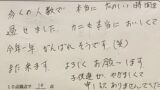 多くの人数で 本当に たのしい時間を
過せました。カニも本当においしくて
今年1年 がんばれそうです。(笑)
また来ます。よろしくお願いします。
子供達が やさましくて
申し訳ありませんでした